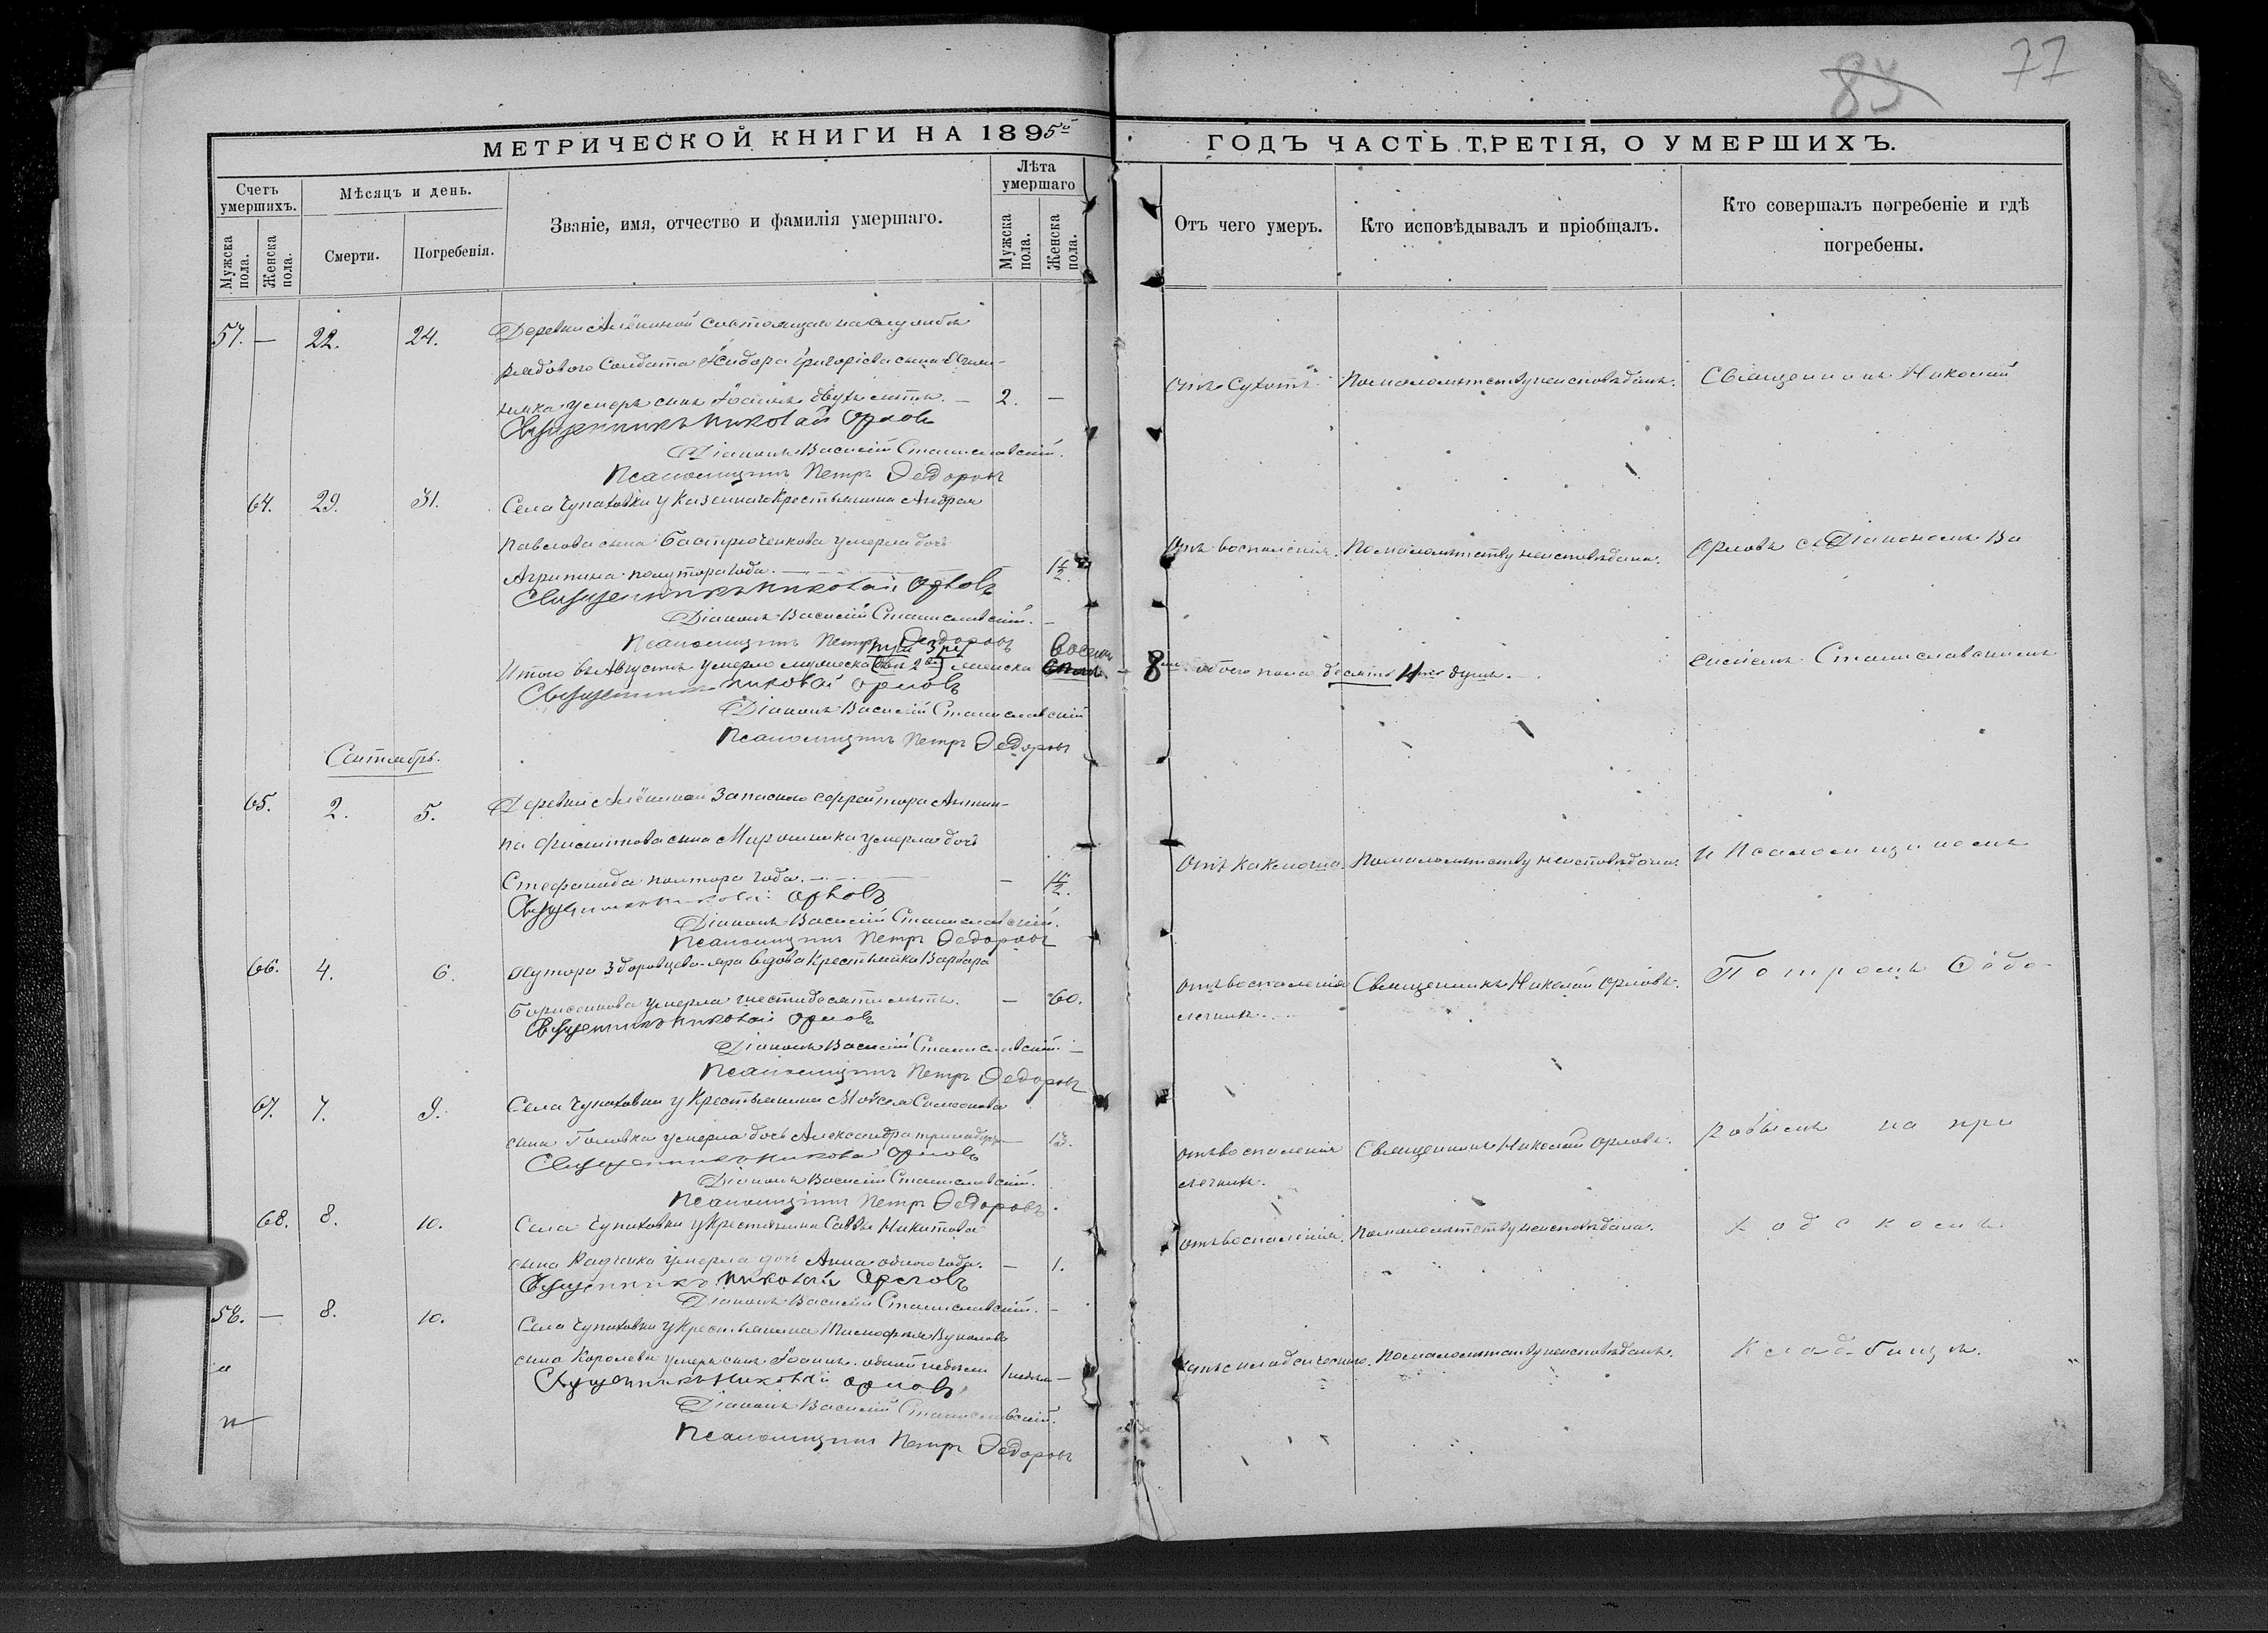 83 77
МЕТРИЧЕСКОЙ КНИГИ НА 1895й ГОДЪ ЧАСТЬ ТРЕТІЯ, О УМЕРШИХЪ.
Счетъ умершихъ.
Мужска пола.
Женска пола.
Мѣсяцъ и день.
Смерти.
Погребенія.
Званіе, имя, отчество и фамилія умершаго.
Лѣта умершаго
Мужска пола.
Женска пола.
Отъ чего умеръ.
Кто исповѣдывалъ и пріобщалъ.
Кто совершалъ погребеніе и гдѣ
погребены.
57. — 22. 24. Деревни состоящаго на службѣ
рядового Солдата Исидора Григоріева сына
умеръ сынъ Іоаннъ двухъ лѣтъ. — 2. — Отъ Сухотъ По малолѣтству неисповѣданъ. Священникъ Николай
Священникъ Николай Орловъ
Діаконъ Василій Станиславскій.
Псаломщикъ Петръ Ѳедоровъ
64. 29. 31. Села Чупаховки у казеннаго крестьянина Андрея
Павлова сына умерла дочь
Агрипина полутора года. — 1½ Отъ воспаленія. По малолѣтству неисповѣдана. Орловъ съ Діакономъ Ва
Священникъ Николай Орловъ
Діаконъ Василій Станиславскій. —
Псаломщикъ Петръ Ѳедоровъ
Итого въ Августѣ умерло мужеска три 3 ри женска восемь — 8 обоего пола десять 11 душъ. силіемъ Станиславскимъ
Священникъ Николай Орловъ
Діаконъ Василій Станиславскій
Псаломщикъ Петръ Ѳедоровъ
Сентябрь.
65. 2. 5. Деревни запаснаго ефрейтора
сына Мирошника умерла дочь
Стефанида полтора года. — — 1½. Отъ коклюша. По малолѣтству неисповѣдана. и Псаломщикомъ
Священникъ Николай Орловъ
Діаконъ Василій Станиславскій.
Псаломщикъ Петръ Ѳедоровъ
66. 4. 6. Хутора вдова крестьянка Варвара
умерла шестидесяти лѣтъ. — 60. отъ воспаленія Священникъ Николай Орловъ. Петромъ Ѳедо-
легкихъ.
Священникъ Николай Орловъ
Діаконъ Василій Станиславскій. —
Псаломщикъ Петръ Ѳедоровъ
67. 7. 9. Села Чупаховки у крестьянина Моисея Симеонова
сына Головка умерла дочь Александра — 13. отъ воспаленія Священникъ Николай Орловъ. ровымъ на при
легкихъ.
Священникъ Николай Орловъ
Діаконъ Василій Станиславскій.
Псаломщикъ Петръ Ѳедоровъ.
68. 8. 10. Села Чупаховки у крестьянина Саввы Никитова
сына умерла дочь Анна одного года. — 1. отъ воспаленія. По малолѣтству неисповѣдана. ходскомъ
Священникъ Николай Орловъ
Діаконъ Василій Станиславскій. —
58. — 8. 10. Села Чупаховки у крестьянина Тимофея
сына Королева умеръ сынъ Іоаннъ одной недѣли 1 недѣли — По малолѣтству неисповѣданъ. кладбищѣ.
Священникъ Николай Орловъ
Діаконъ Василій Станиславскій.
Псаломщикъ Петръ Ѳедоровъ